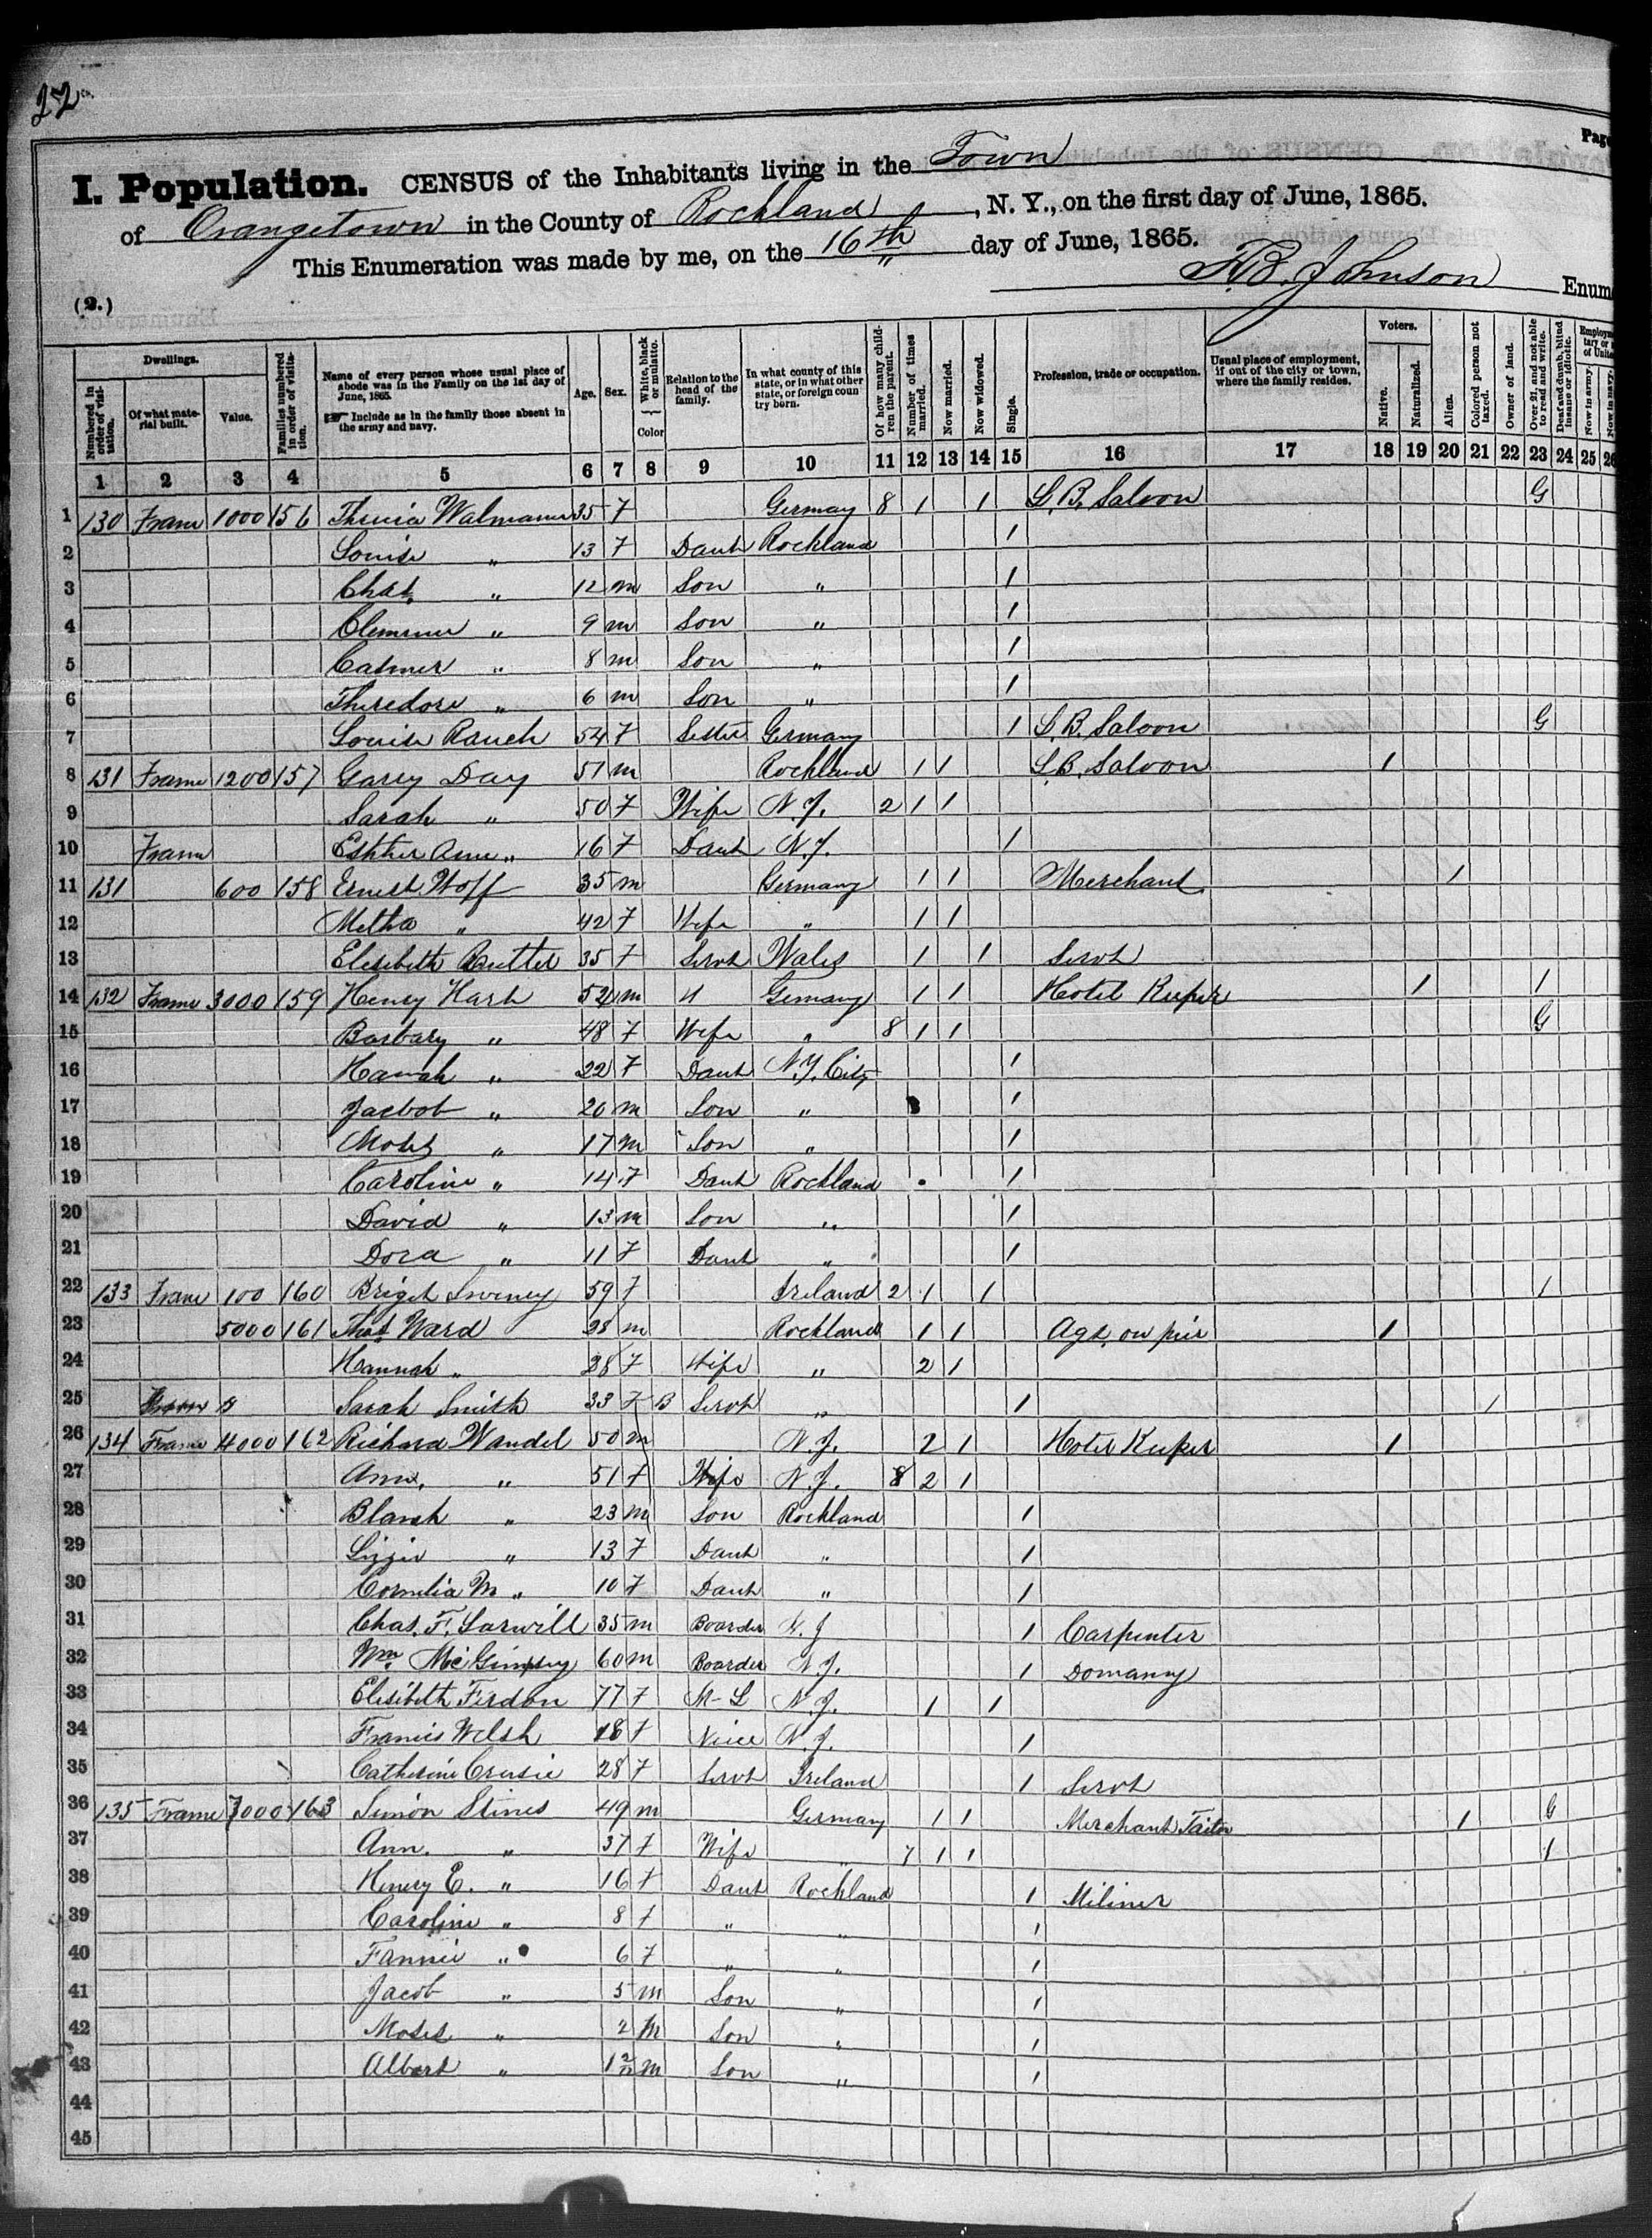 22
Page
I. Population. CENSUS of the Inhabitants living in the Town
of Orangetown in the County of Rockland, N. Y., on the first day of June, 1865.
This Enumeration was made by me, on the 16th day of June, 1865.
(2.) Johnson Enum
Dwellings. Voters.
Numbered in order of visitation. Of what material built. Value. Families numbered in order of visitation. Name of every person whose usual place of abode was in the Family on the 1st day of June, 1865. Include as in the family those absent in the army and navy. Age. Sex. White, black or mulatto. Color Relation to the head of the family. In what county of this state, or in what other state, or foreign country born. Of how many children the parent. Number of times married. Now married. Now widowed. Single. Profession, trade or occupation. Usual place of employment, if out of the city or town, where the family resides. Native. Naturalized. Alien. Colored person not taxed. Owner of land. Over 21, and not able to read and write. Deaf and dumb, blind insane or idiotic. Now in army. Now in navy.
1 2 3 4 5 6 7 8 9 10 11 12 13 14 15 16 17 18 19 20 21 22 23 24 25 26
1 130 Frame 1000 156 35 F Germany 8 1 1 L. B. Saloon G
2 Louise " 13 F Daut Rockland 1
3 Chas. " 12 m Son " 1
4 " 9 m Son " 1
5 " 8 m Son " 1
6 Theredore " 6 m Son " 1
7 Louisa Rauch 54 F Sister Germany 1 L. B. Saloon G
8 131 Frame 1200 157 Garey Day 51 m Rockland 1 1 L. B. Saloon 1
9 Sarah " 50 F Wife N. J. 2 1 1
10 Frame Esther Ann " 16 F Daut N. J. 1
11 131 600 158 Ernest Woff 35 m Germany 1 1 Merchant 1
12 Metha " 42 F Wife " 1 1
13 Elesibeth 35 F Servt Wales 1 1 Servt
14 132 Frame 3000 159 Henry Hash 52 m " Gemany 1 1 Hotel Keeper 1 1
15 Barbary " 48 F Wife " 8 1 1 G
16 Hannah " 22 F Daut N. Y. City 1
17 Jacbob " 20 m Son " 1
18 Moses " 17 m Son " 1
19 Caroline " 14 F Daut Rockland 1
20 David " 13 m Son " 1
21 Dora " 11 F Daut " 1
22 133 Frame 100 160 Briget Sweney 59 F Ireland 2 1 1 1
23 5000 161 Thos Ward 28 m Rockland 1 1 Agt. on pier 1
24 Hannah " 28 F Wife " 2 1
25 Sarah Smith 33 F B Servt " 1 1
26 134 Frame 4000 162 Richard Wandel 50 m N. J. 2 1 Hotel Keeper 1
27 Ann. " 51 F Wife N. J. 8 2 1
28 Blansh " 23 m Son Rockland 1
29 Lizzie " 13 F Daut " 1
30 Cornelia M " 10 F Daut " 1
31 Chas. F. Sarwill 35 m Boarder N. J 1 Carpenter
32 Wm McGimpsey 60 m Boarder N. J. 1 Domanny
33 Elisibeth Ferdon 77 F M-L N. J. 1 1
34 Francis Welsh 18 F Niece N. J. 1
35 Catherine Crusie 28 F Servt Ireland 1 Servt
36 135 Frame 7000 163 Simon Stines 49 m Germany 1 1 Merchant Tailor 1 G
37 Ann. " 37 F Wife " 7 1 1 1
38 Henery E. " 16 F Daut Rockland 1 Miliner
39 Caroline " 8 F " " 1
40 Fannie " 6 F " " 1
41 Jacob " 5 m Son " 1
42 Moses " 2 m Son " 1
43 Albert " m Son " 1
44
45